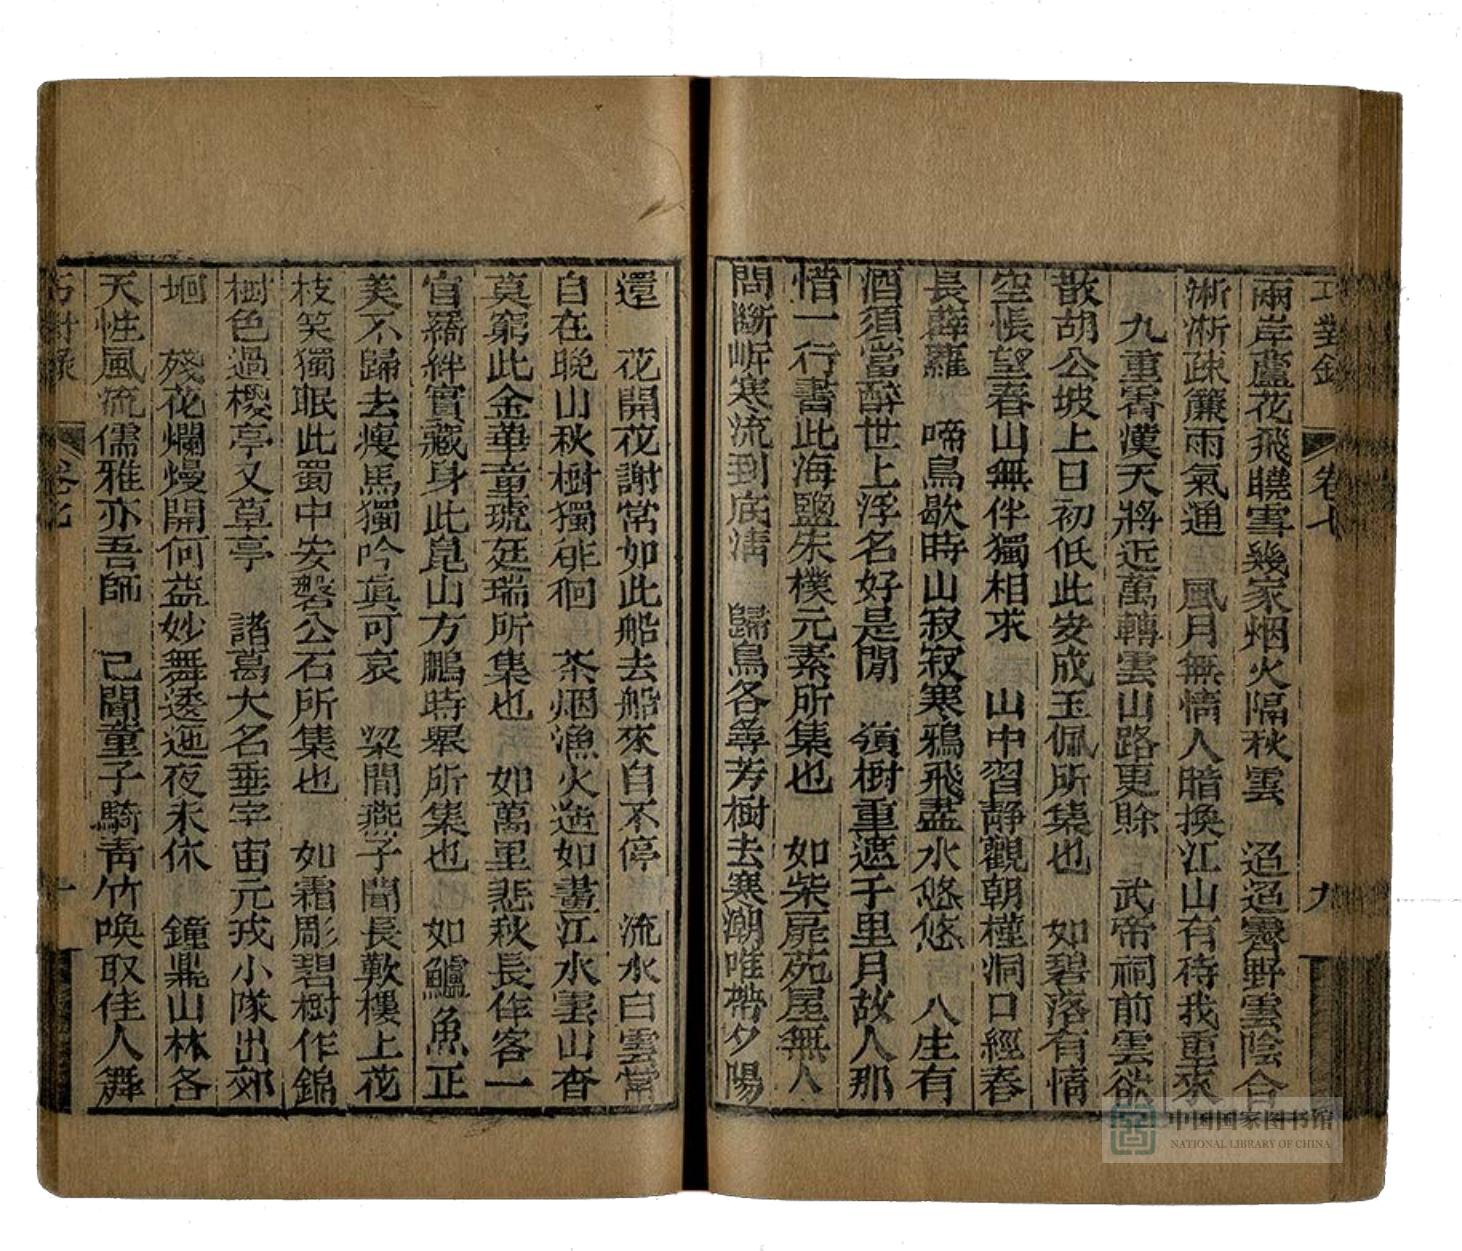 巧對錄 卷七 九
兩岸蘆花飛曉雪幾家烟火隔秋雲 迢迢霽野雲陰合
淅淅疎簾雨氣通 風月無情人暗換江山有待我重來
九重霄漢天將近萬轉雲山路更賒 武帝祠前雲欲
散胡公坡上日初低此安成玉佩所集也 如碧落有情
空悵望春山無伴獨相求 山中習靜觀朝槿洞口經春
長薜蘿 啼鳥歇時山寂寂寒鴉飛盡水悠悠 人生有
酒須當醉世上浮名好是閒 嶺樹重遮千里月故人那
惜一行書此海鹽朱樸元素所集也 如柴扉苑屋無人
問斷岸寒流到底淸 歸鳥各尋芳樹去寒潮唯帶夕陽
還 花開花謝常如此船去船來自不停 流水白雲常
自在晚山秋樹獨徘徊 茶烟漁火遙如畫江水雲山杳
莫窮此金華童琥廷瑞所集也 如萬里悲秋長作客一
官羈絆實藏身此崑山方鵬時舉所集也 如鱸魚正
美不歸去瘦馬獨吟眞可哀 梁間燕子聞長歎樓上花
枝笑獨眠此蜀中安磐公石所集也 如霜彫碧樹作錦
樹色過櫻亭又草亭 諸葛大名垂宇宙元戎小隊出郊
坰 殘花爛熳開何益妙舞逶迤夜未休 鐘鼎山林各
天性風流儒雅亦吾師 已聞童子騎靑竹喚取佳人舞
巧對錄 卷七 十
中国国家图书馆
NATIONAL LIBRARY OF CHINA